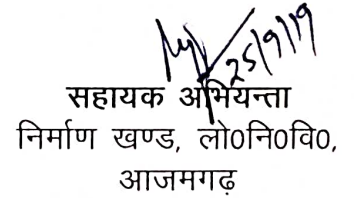 25/9/19
सहायक अभियन्ता
निर्माण खण्ड, लो0नि0वि0,
आजमगढ़